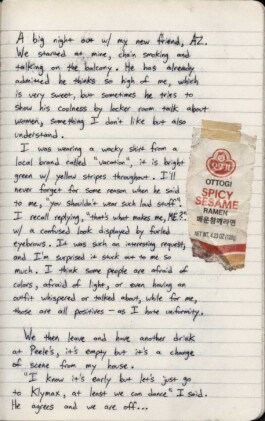 A big night out w/ my new friend, AZ.
We started at mine, chain smoking and
talking on the balcony. He has already
admitted he thinks so high of me, which
is very sweet, but sometimes he tries to
show his coolness by locker room talk about
women, something I don't like but also
understand.
I was wearing a wacky shirt from a
local brand called "vacation", it is bright
green w/ yellow stripes throughout. I'll
never forget for some reason when he said
to me, "you shouldn't wear such loud stuff".
I recall replying, "that's what makes me, ME?"
w/ a confused look displayed by furled
eyebrows. It was such an interesting request,
and I'm surprised it stuck out to me so
much. I think some people are afraid of
colors, afraid of light, or even having an
outfit whispered or talked about, while for me,
those are all positives - as I hate uniformity.
We then leave and have another drink
at Peele's, it's empty but it's a change
of scene from my house.
"I know it's early but let's just go
to Klymax, at least we can dance" I said.
He agrees and we are off...
OTTOGI
SPICY
SESAME
RAMEN
배무참깨라면
NET WT. 4.23 OZ (120g)